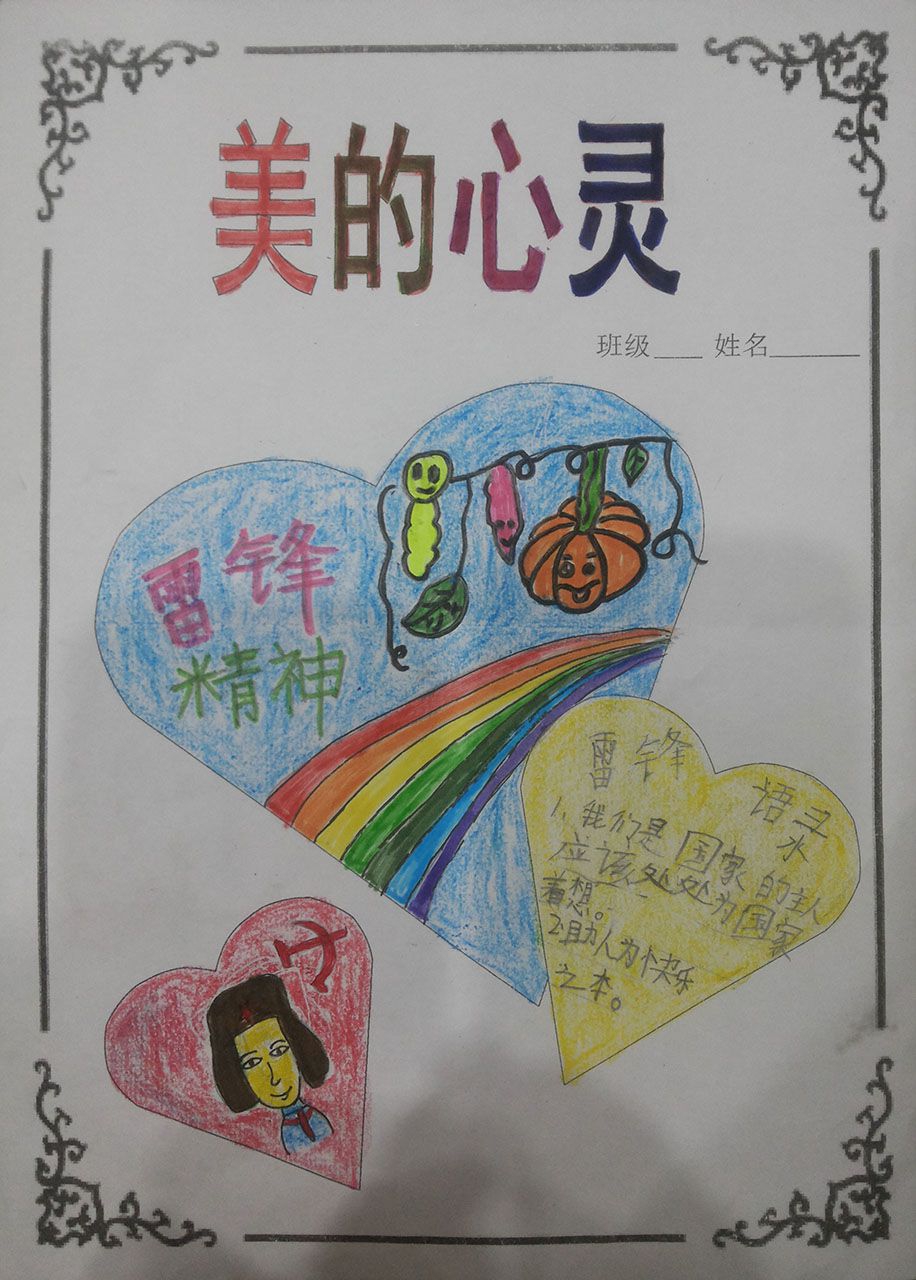 美的心灵
班级____ 姓名_______
雷锋
精神
雷锋 语录
1、我们是国家的主人
应该处处为国家
着想。
2、助人为快乐
之本。